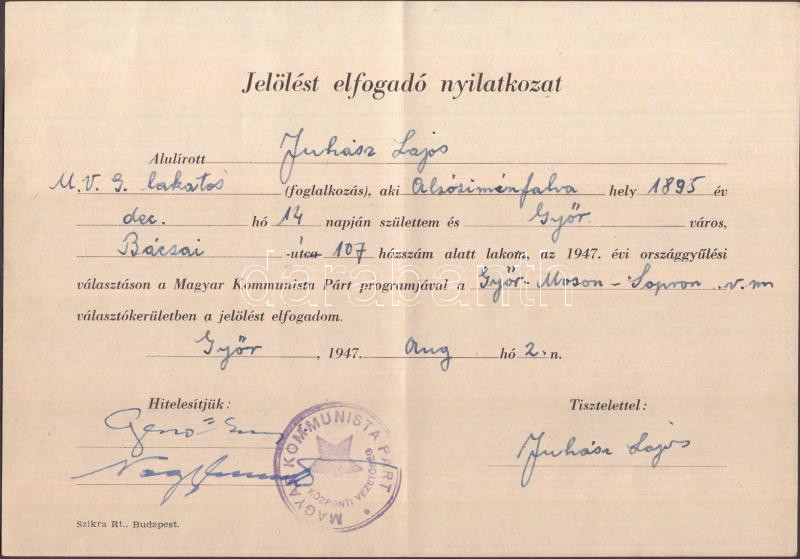 Jelölést elfogadó nyilatkozat
Alulírott Juhász Lajos
M. V. G. lakatos (foglalkozás), aki Alsósiménfalva hely 1895 év
dec. hó 14 napján születtem és Győr város,
Bácsai -útca 107 házszám alatt lakom, az 1947. évi országgyűlési
választáson a Magyar Kommunista Párt programjával a Győr-Moson-Sopron v.m
választókerületben a jelölést elfogadom.
Győr, 1947. Aug hó 2.-n.
Hitelesítjük: Tisztelettel:
Juhász Lajos
MAGYAR KOMMUNISTA PÁRT
KÖZPONTI VEZETŐSÉG
Szikra Rt., Budapest.
darabanth